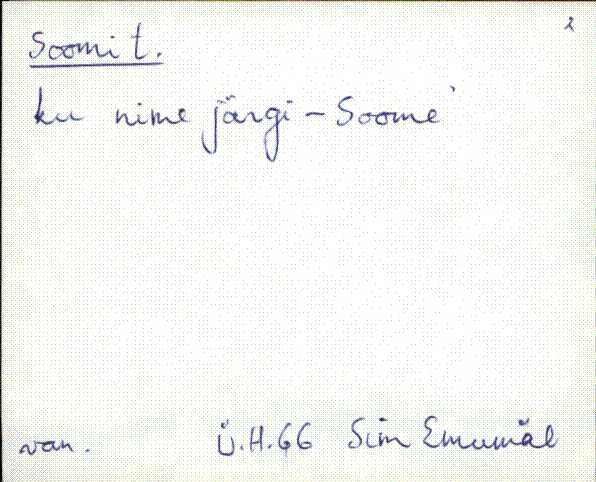 2
Soomi t.
ku nime järgi – Soome
van. Ü.H.66 Sim Emumäl